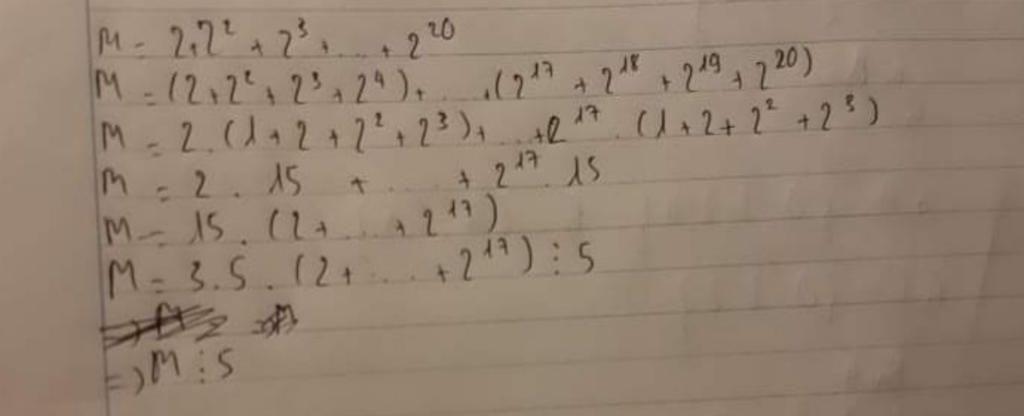 M = 2+2² + 2³ + ... + 2²⁰
M = (2+2² + 2³ + 2⁴) + ... + (2¹⁷ + 2¹⁸ + 2¹⁹ + 2²⁰)
M = 2 . (1+2 + 2² + 2³) + ... + 2¹⁷ . (1+2+ 2² + 2³)
M = 2 . 15 + ... + 2¹⁷ . 15
M = 15 . (2 + ... + 2¹⁷)
M = 3.5 . (2 + ... + 2¹⁷) ⋮ 5
=) M ⋮ 5